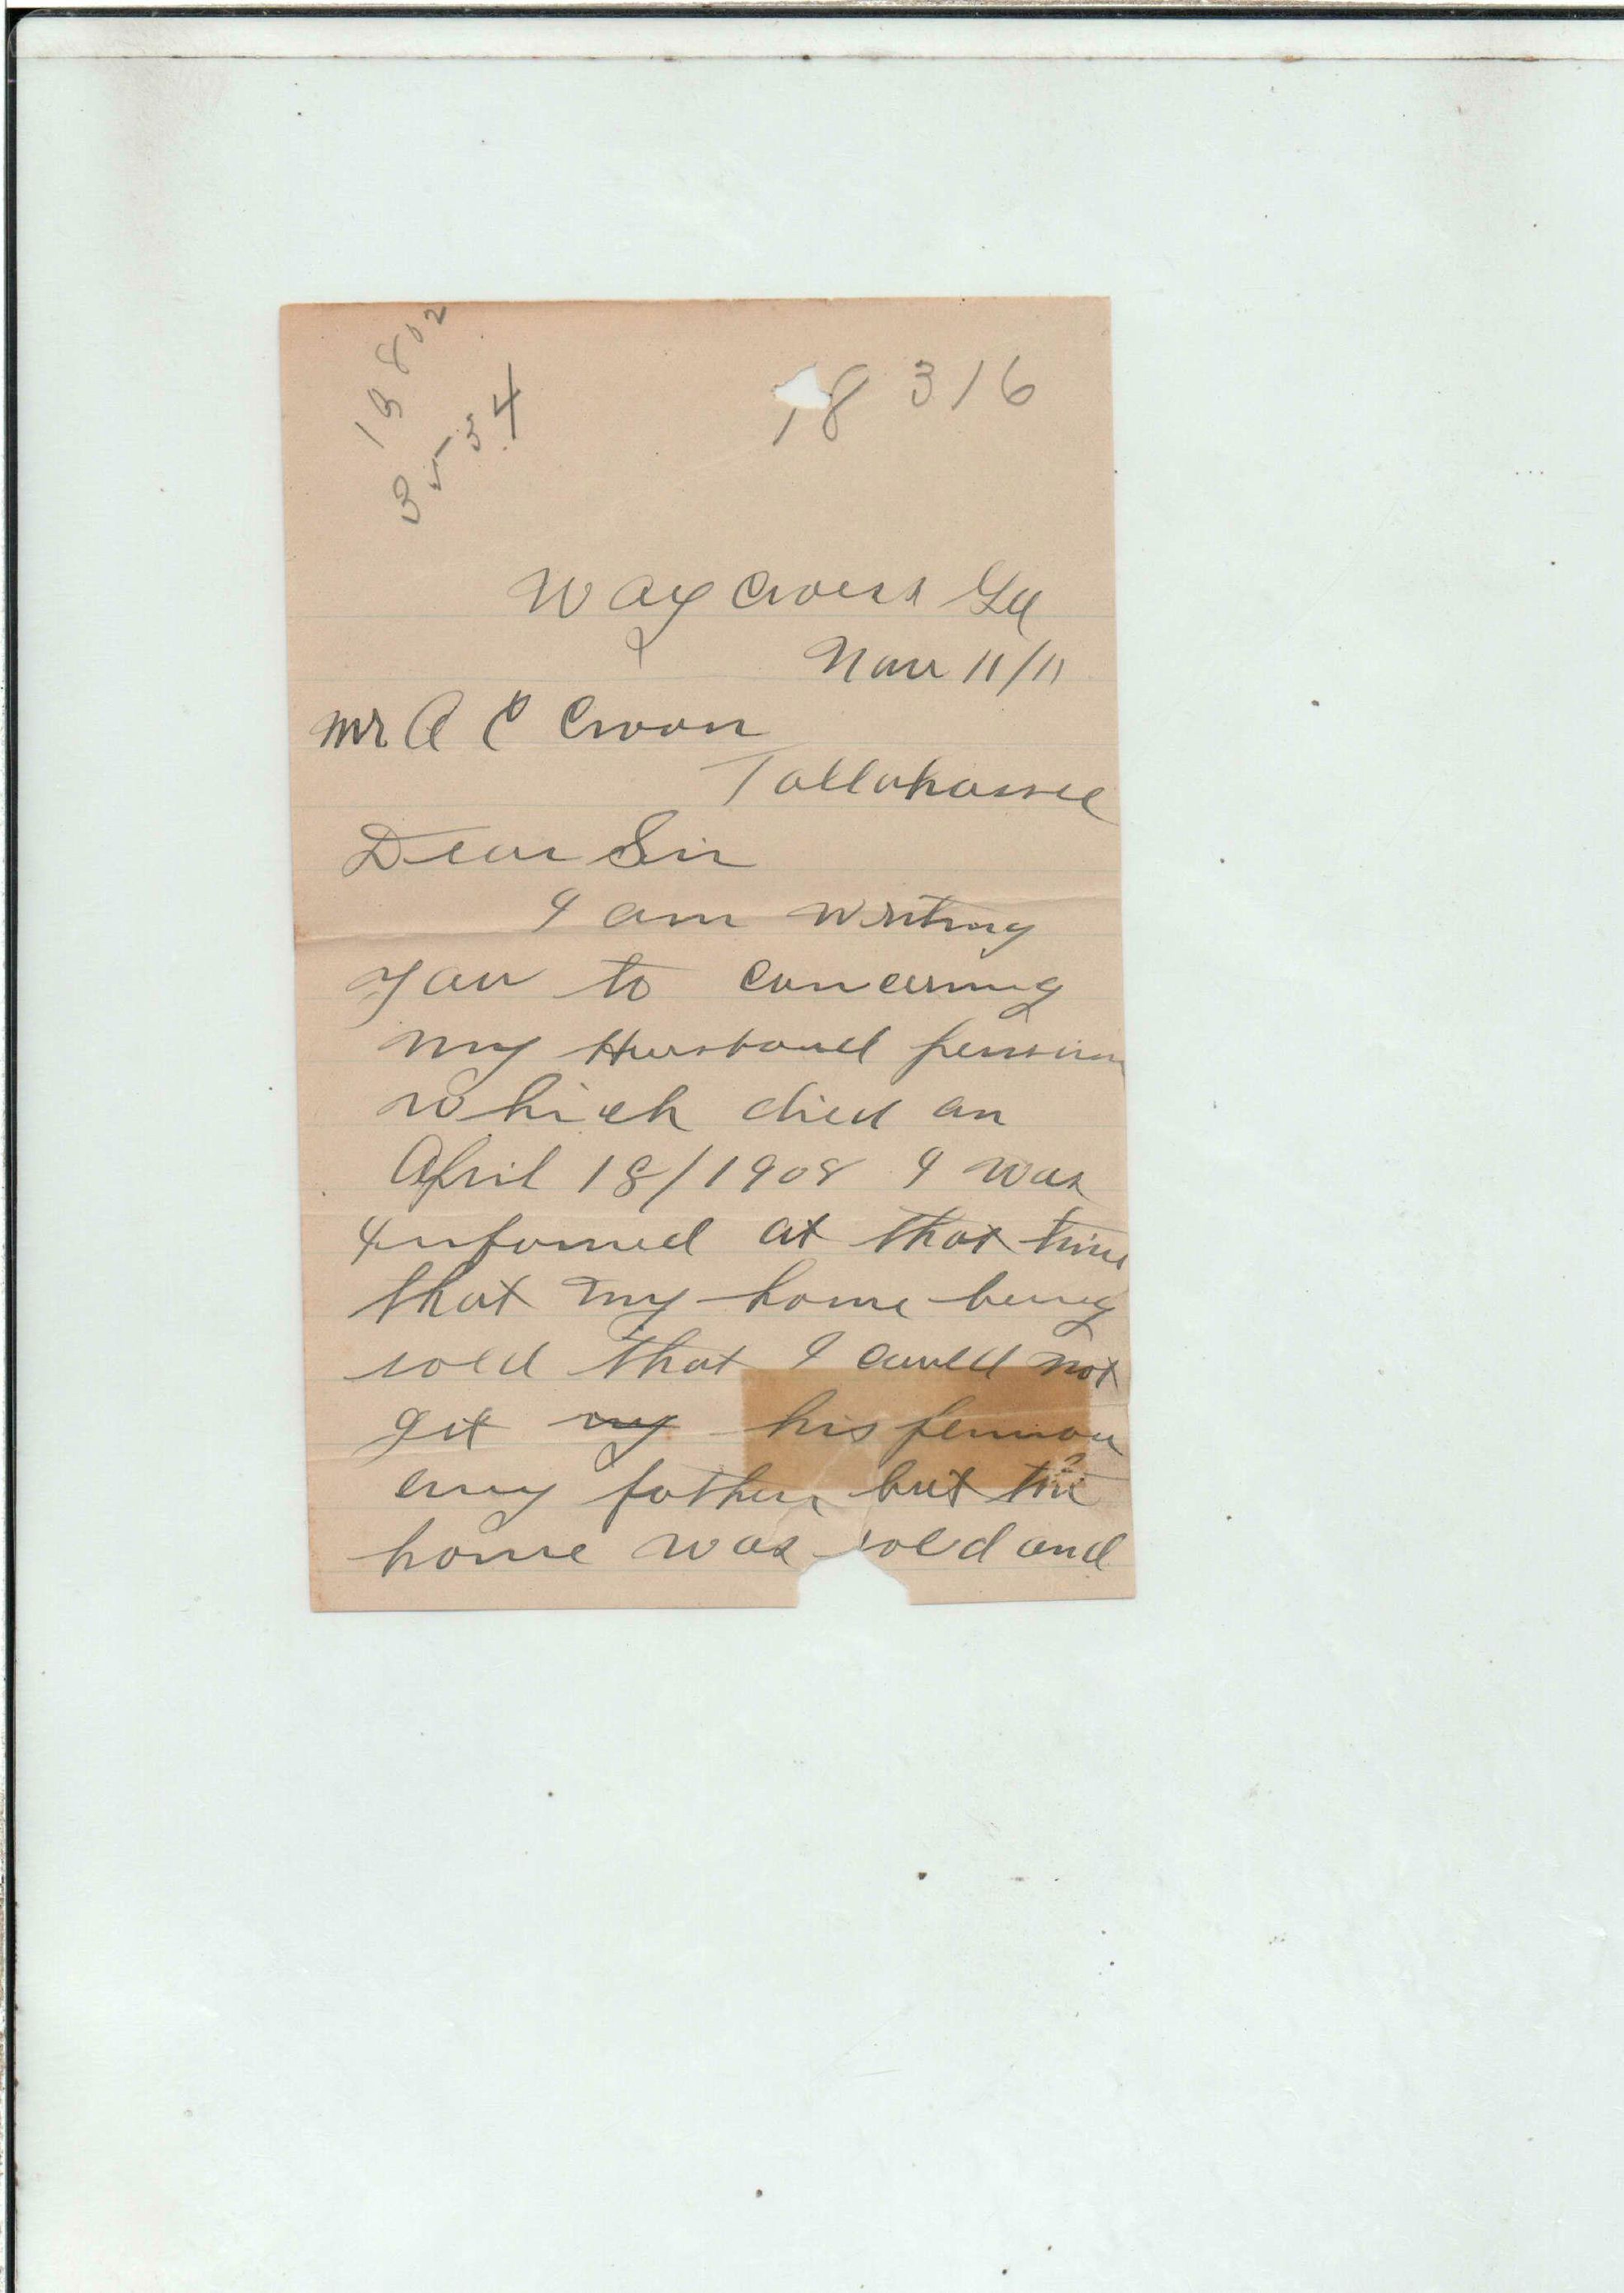 19802
3534
18316
Way Cross Ga
Nov 11/11
Mr A C Croom
Tallahassee
Dear Sir
I am writing
you to concerning
my Husband pension
which died on
April 18/1908 I was
Informed at that time
that my home being
sold that I could not
get my his pension
eny father but the
home was sold and